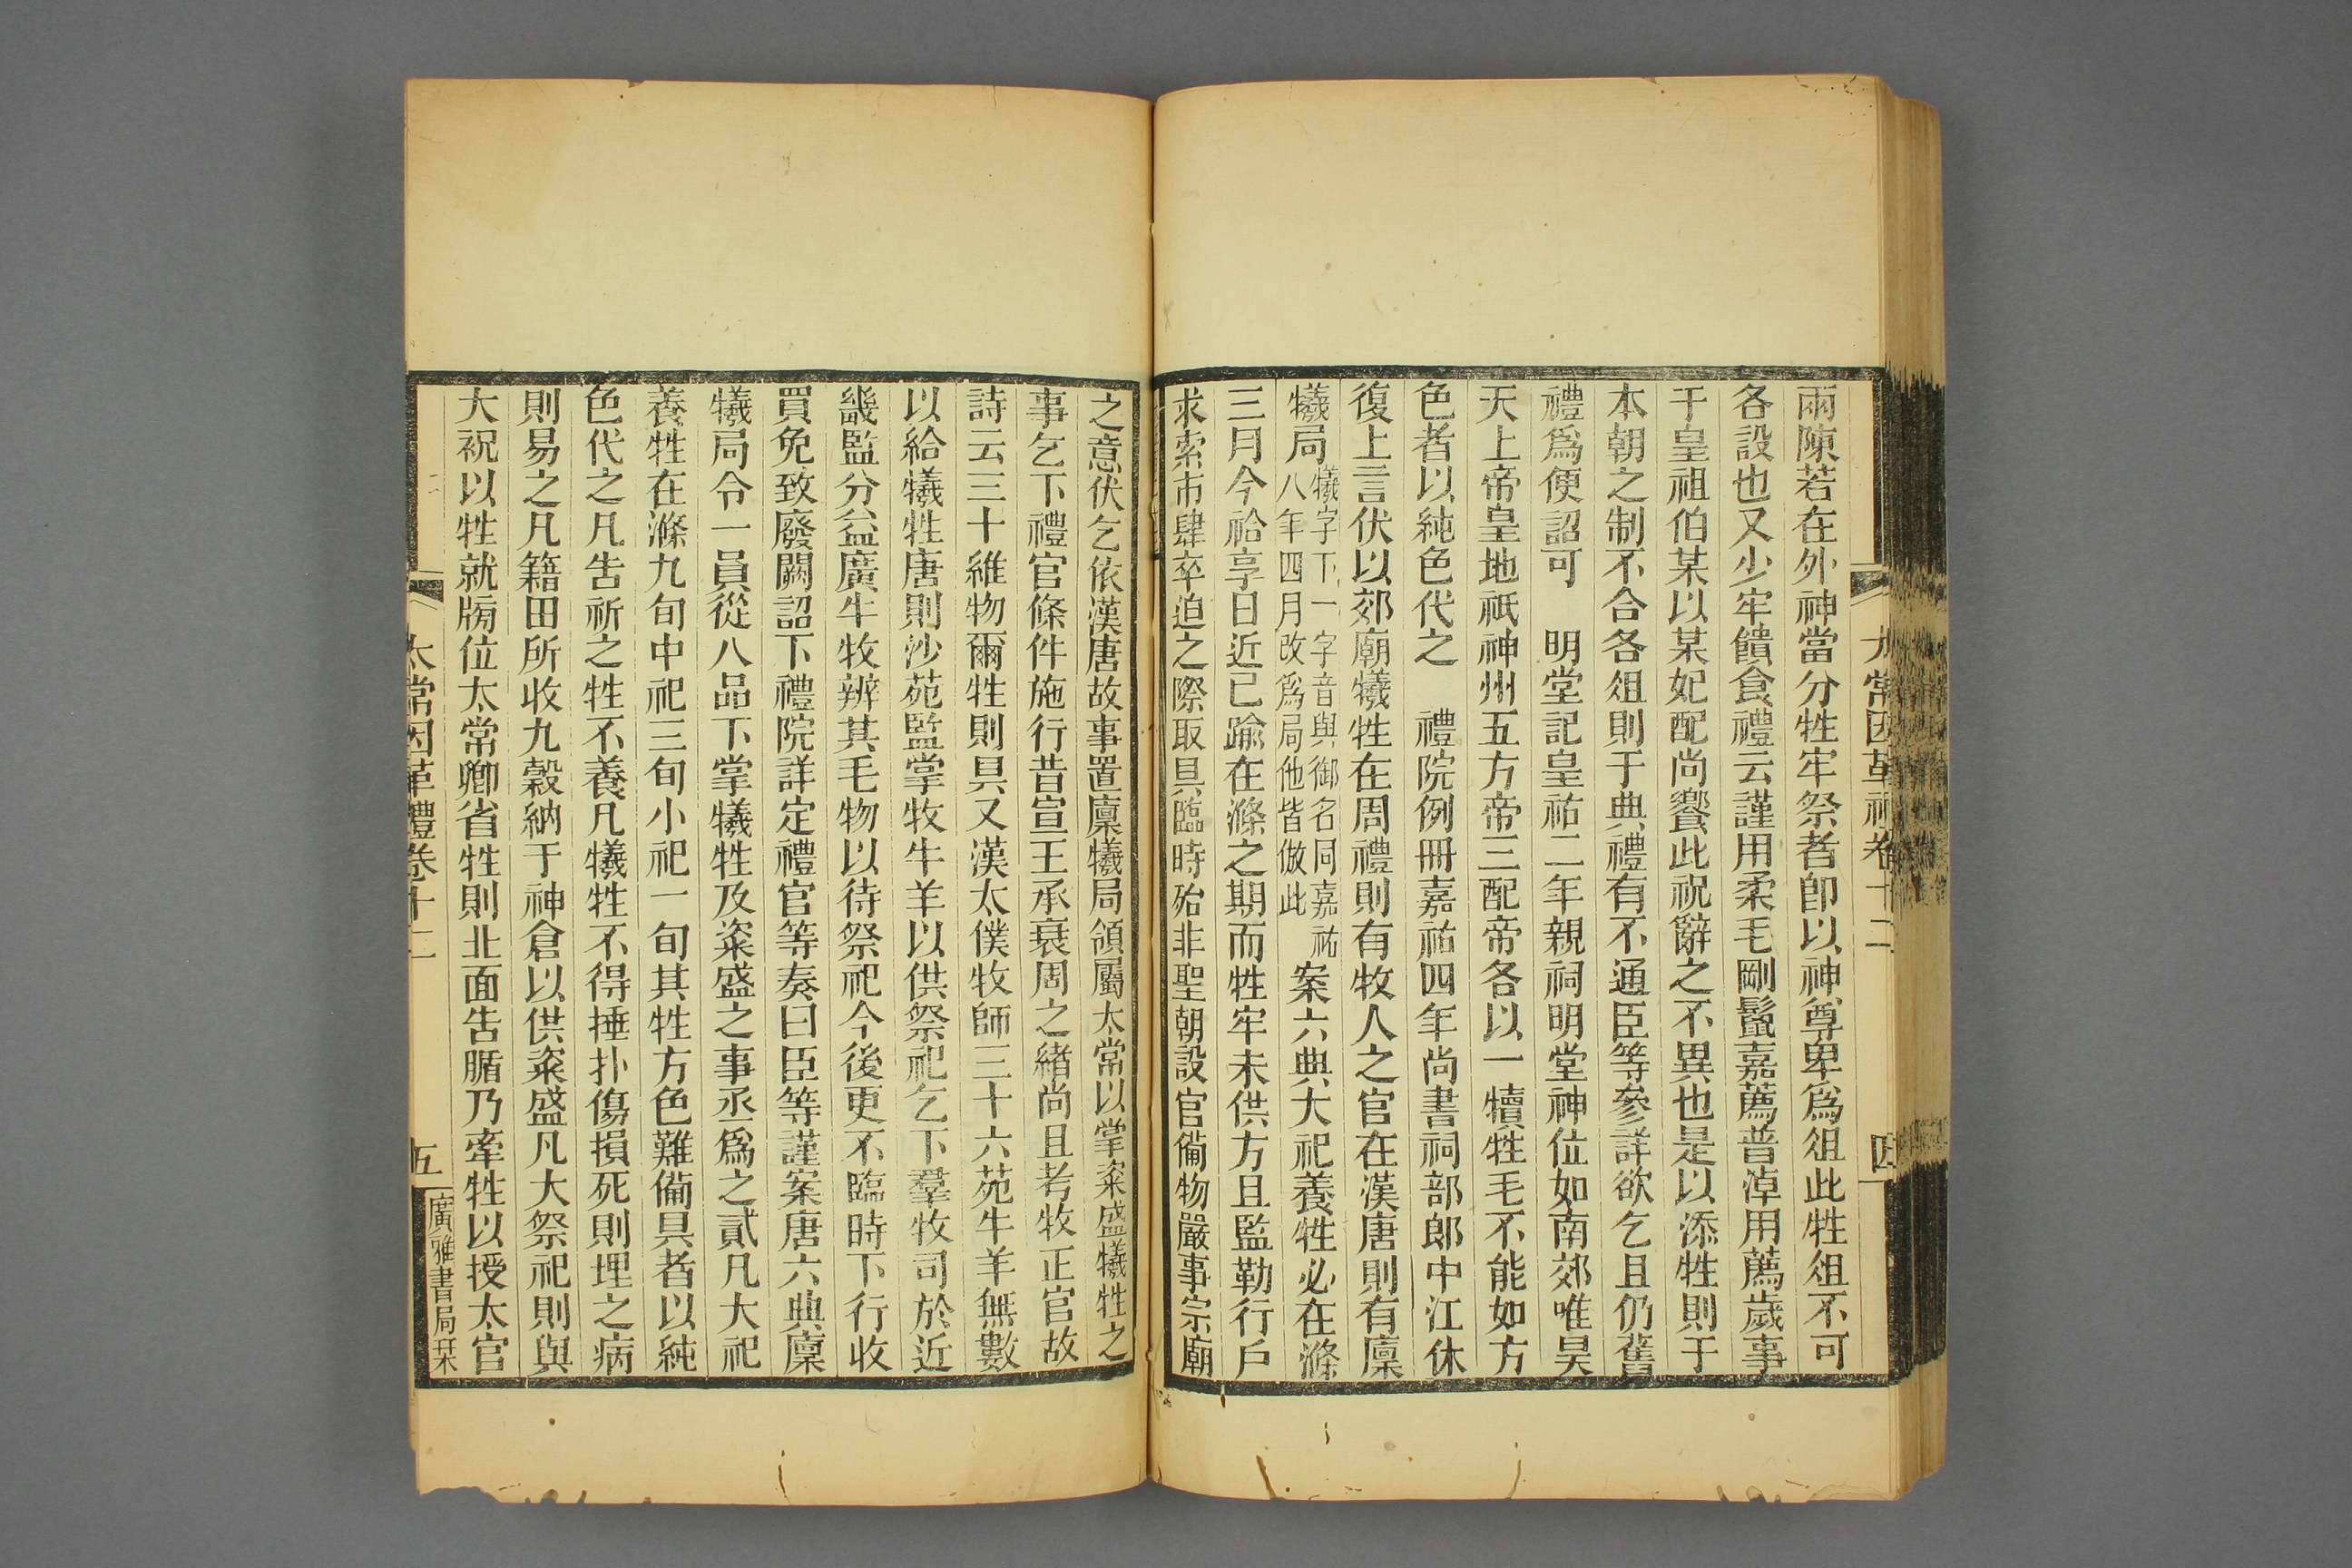 兩陳若在外神當分牲牢祭者卽以神尊卑爲俎此牲俎不可
各設也又少牢饋食禮云謹用柔毛剛鬣嘉薦普淖用薦歲事
于皇祖伯某以某妃配尚饗此祝辭之不異也是以添牲則于
本朝之制不合各俎則于典禮有不通臣等參詳欲乞且仍舊
禮爲便詔可　明堂記皇祐二年親祠明堂神位如南郊唯昊
天上帝皇地祇神州五方帝三配帝各以一犢牲毛不能如方
色者以純色代之　禮院例冊嘉祐四年尚書祠部郎中江休
復上言伏以郊廟犧牲在周禮則有牧人之官在漢唐則有廩
犧局犧字下一字音與御名同嘉祐八年四月改爲局他皆倣此案六典大祀養牲必在滌
三月今祫享日近已踰在滌之期而牲牢未供方且監勒行戶
求索市肆卒迫之際取具臨時殆非聖朝設官備物嚴事宗廟
太常因革禮卷十二
四
之意伏乞依漢唐故事置廩犧局領屬太常以掌粢盛犧牲之
事乞下禮官條件施行昔宣王承衰周之緒尚且考牧正官故
詩云三十維物爾牲則具又漢太僕牧師三十六苑牛羊無數
以給犧牲唐則沙苑監掌牧牛羊以供祭祀乞下羣牧司於近
畿監分益廣牛牧辨其毛物以待祭祀今後更不臨時下行收
買免致廢闕詔下禮院詳定禮官等奏曰臣等謹案唐六典廩
犧局令一員從八品下掌犧牲及粢盛之事丞爲之貳凡大祀
養牲在滌九旬中祀三旬小祀一旬其牲方色難備具者以純
色代之凡告祈之牲不養凡犧牲不得捶扑傷損死則埋之病
則易之凡籍田所收九穀納于神倉以供粢盛凡大祭祀則與
大祝以牲就牓位太常卿省牲則北面告腯乃牽牲以授太官
太常因革禮卷十二
五
廣雅書局栞